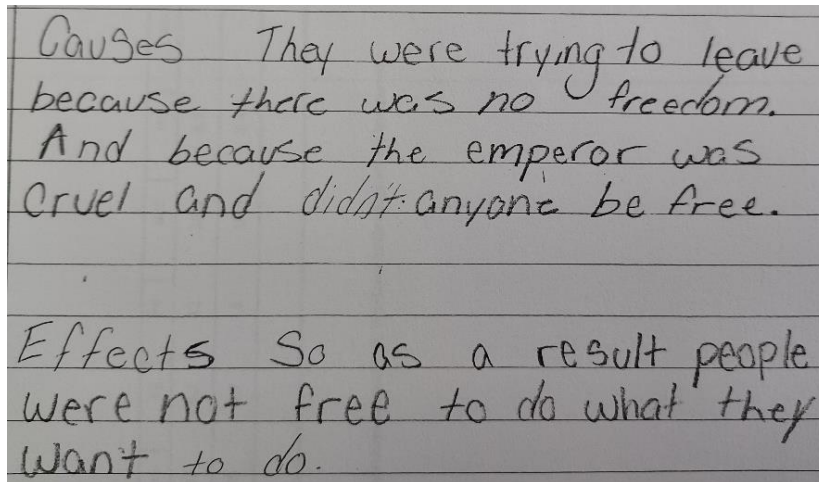 Causes They were trying to leave
because there was no freedom.
And because the emperor was
cruel and didn't anyone be free.
Effects So as a result people
were not free to do what they
want to do.